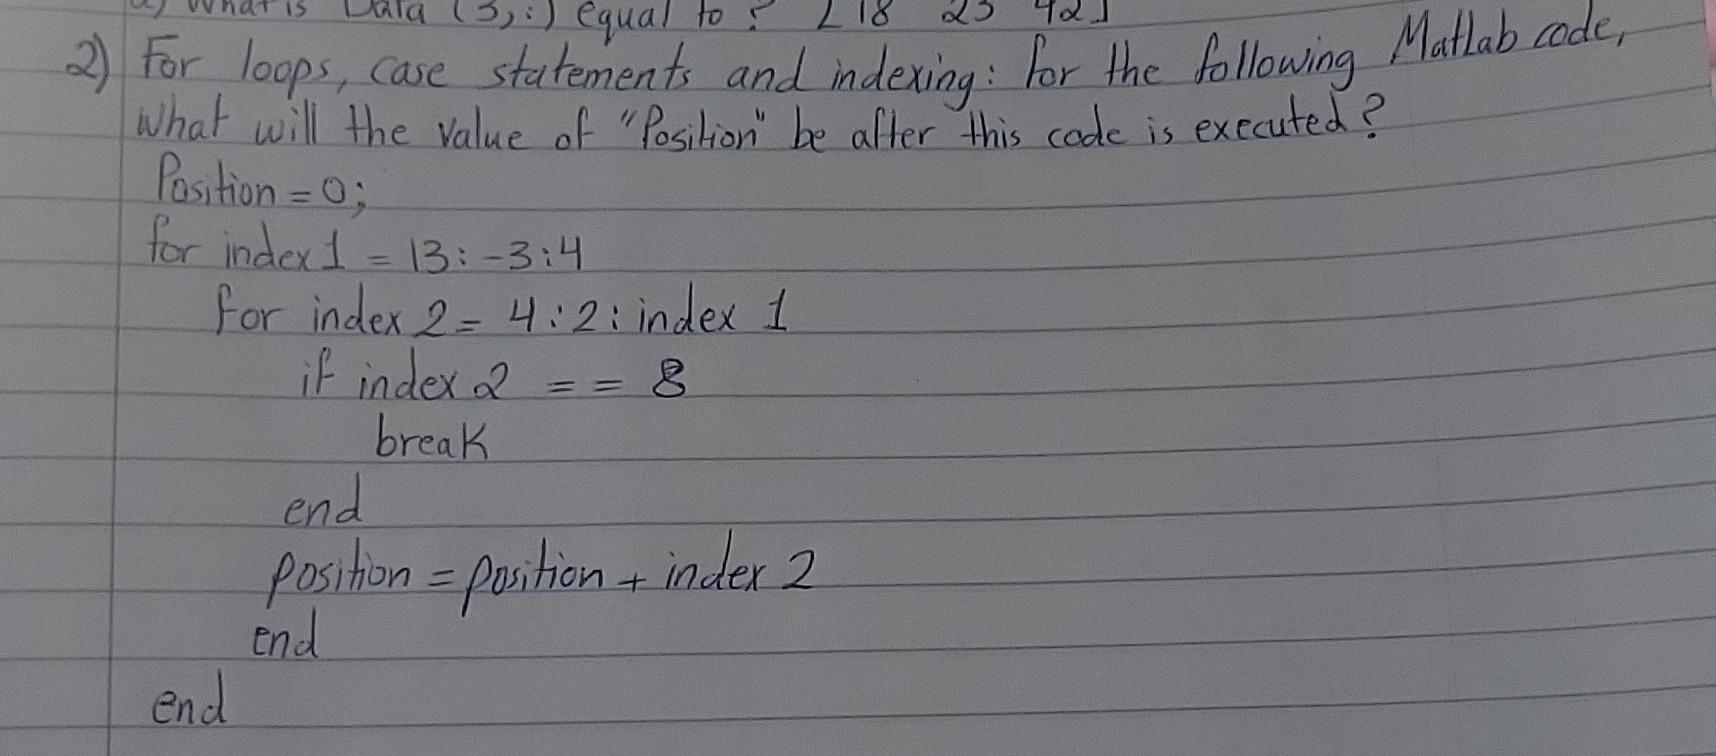 a) What is Data (3,:) equal to ? [18 23 42]
2) For loops, case statements and indexing: for the following Matlab code,
What will the value of "Position" be after this code is executed?
Position = 0;
for index 1 = 13:-3:4
for index 2 = 4:2: index 1
if index 2 == 8
break
end
position = position + index 2
end
end